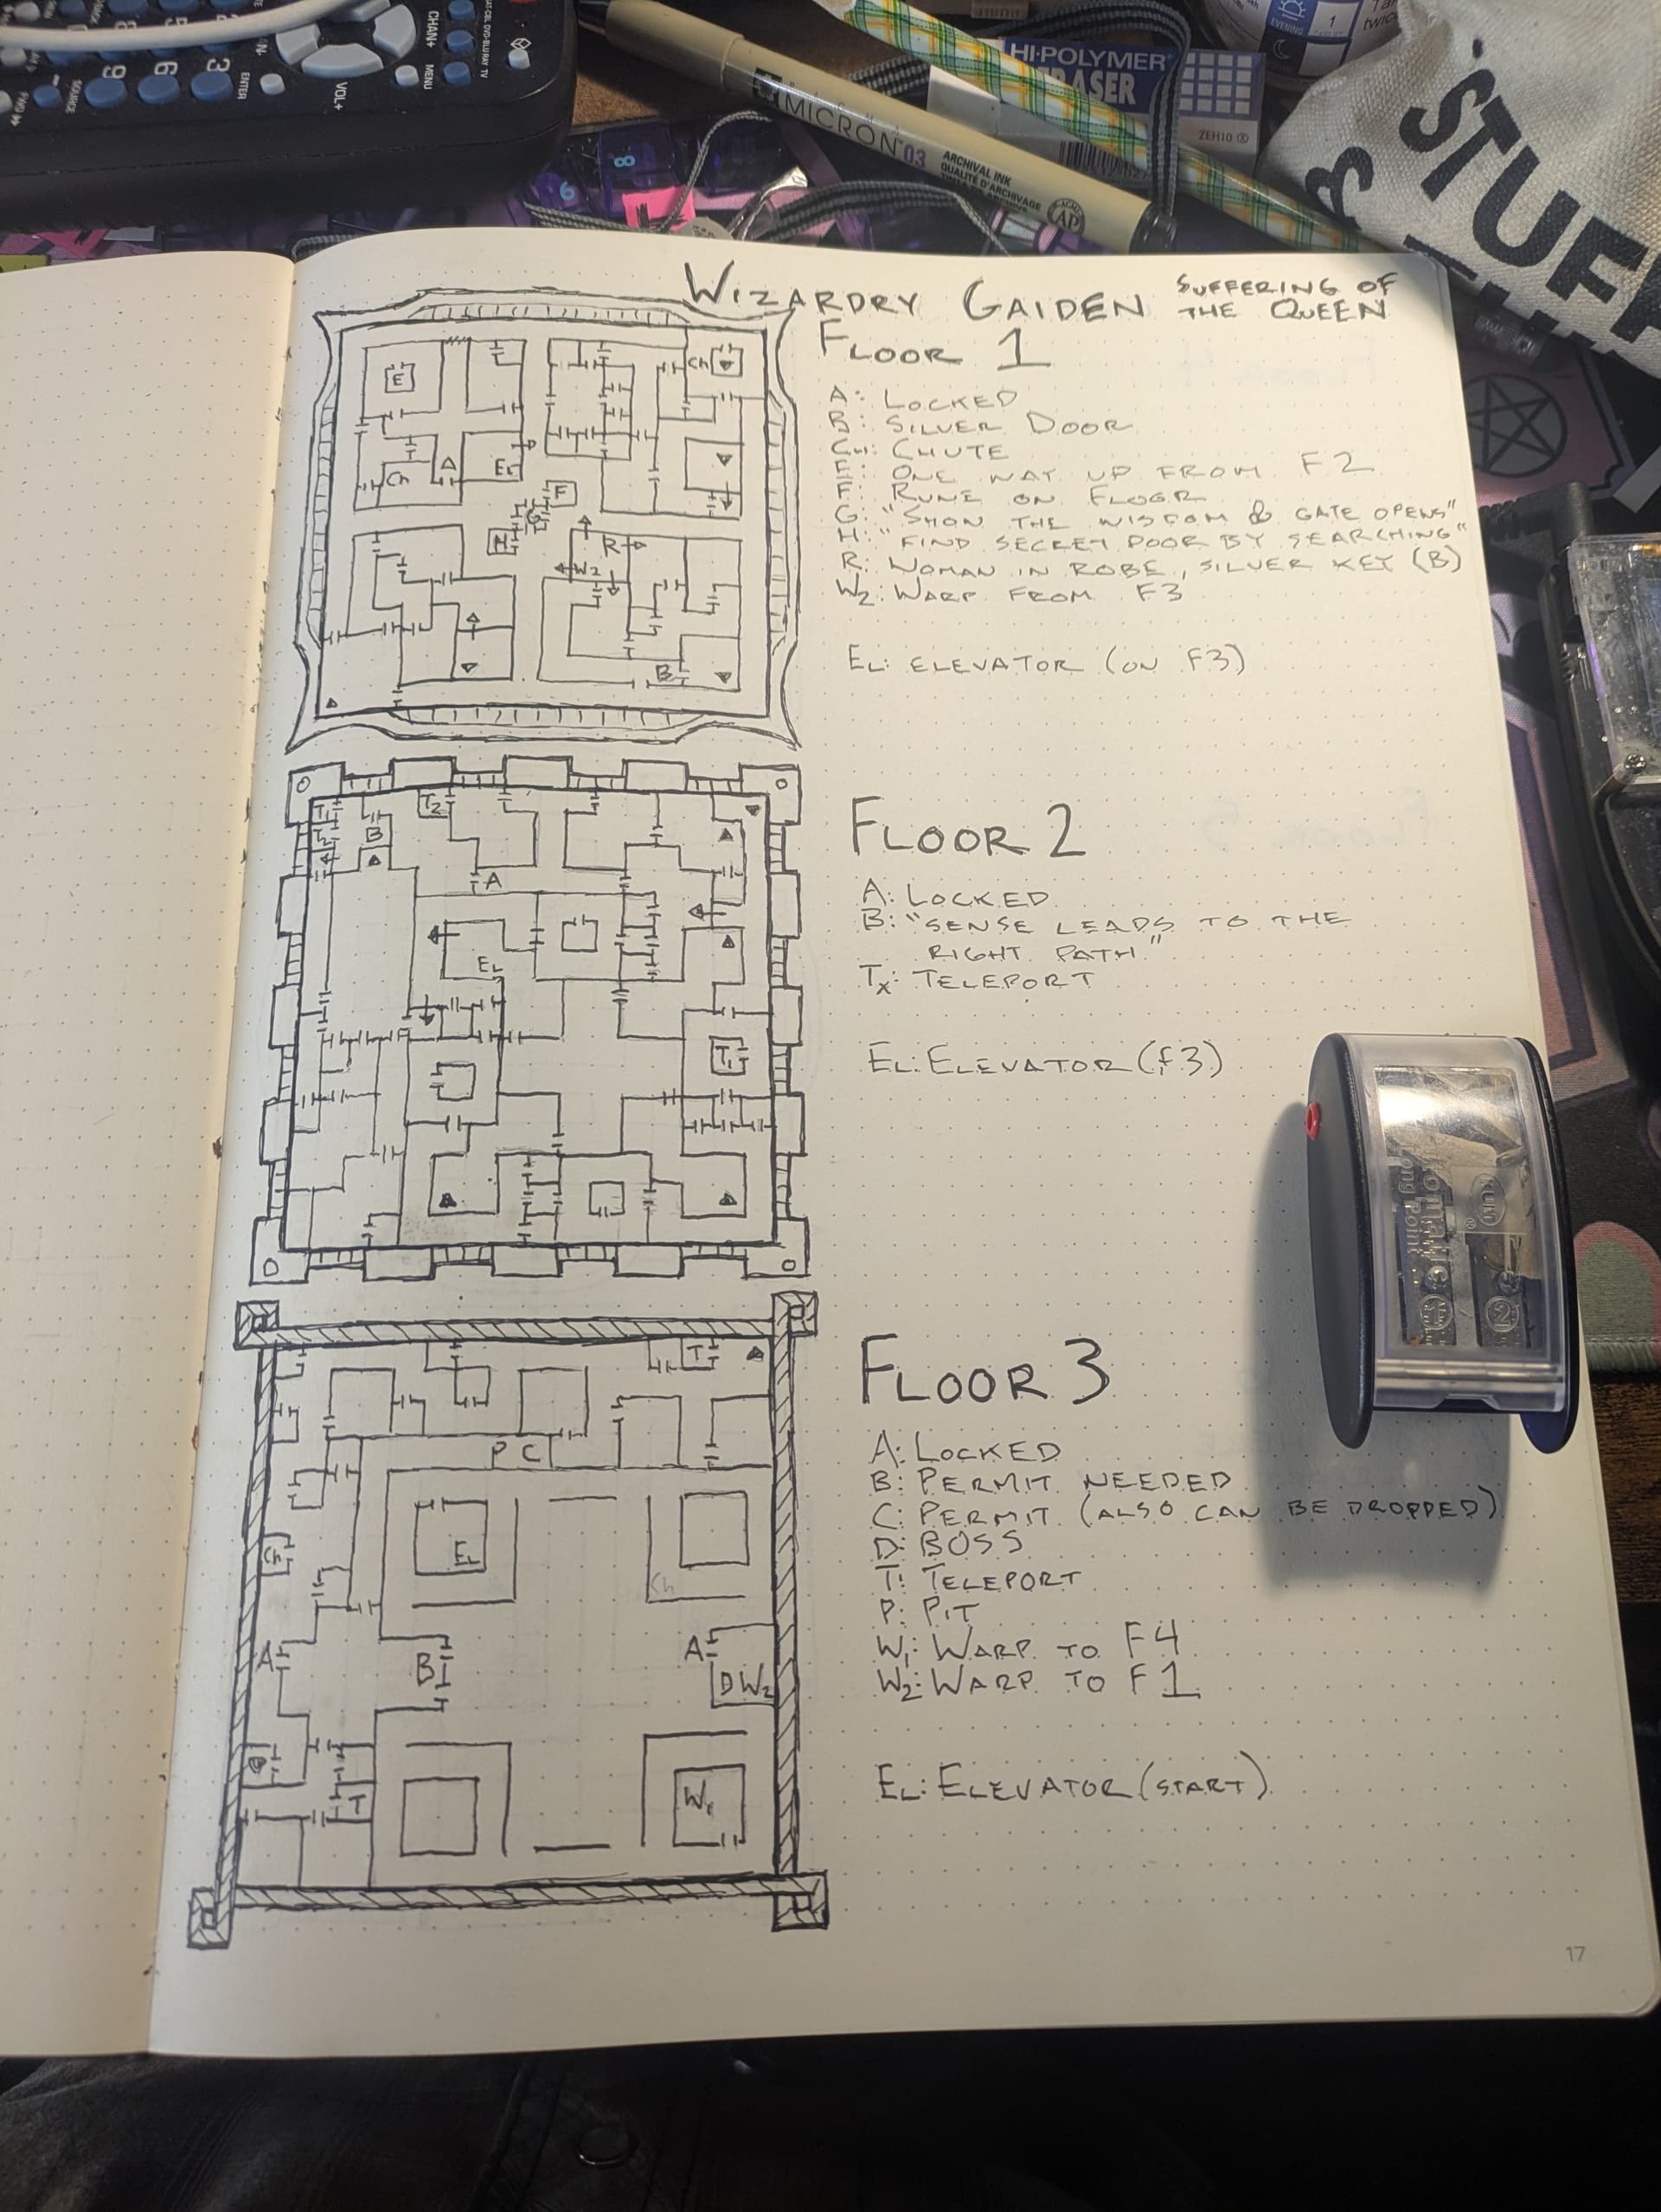 CHAN+
MENU
ENTER
VOL+
SOURCE
9
6
3
5
8
9
MICRON 03
ARCHIVAL INK
QUALITÉ D'ARCHIVAGE
AP
HI-POLYMER
ERASER
ZEH10
EVENING
1
STUFF
&
WIZARDRY GAIDEN SUFFERING OF
THE QUEEN
FLOOR 1
A: LOCKED
B: SILVER DOOR
CH: CHUTE
E: ONE WAY UP FROM F2
F: RUNE ON FLOOR
G: "SHOW THE WISDOM & GATE OPENS"
H: "FIND SECRET DOOR BY SEARCHING"
R: WOMAN IN ROBE, SILVER KEY (B)
W2: WARP FROM F3
EL: ELEVATOR (ON F3)
E
Ch
Ch
EL
F
G
H
R
W2
B
FLOOR 2
A: LOCKED
B: "SENSE LEADS TO THE
RIGHT PATH"
Tx: TELEPORT
EL: ELEVATOR (F3)
T1
T2
T2
B
A
EL
T1
FLOOR 3
A: LOCKED
B: PERMIT NEEDED
C: PERMIT (ALSO CAN BE DROPPED)
D: BOSS
T: TELEPORT
P: PIT
W1: WARP TO F4
W2: WARP TO F1
EL: ELEVATOR (START)
T
P C
EL
Ch
A
B
A
D W2
T
W1
KUM
Long Point
2
17